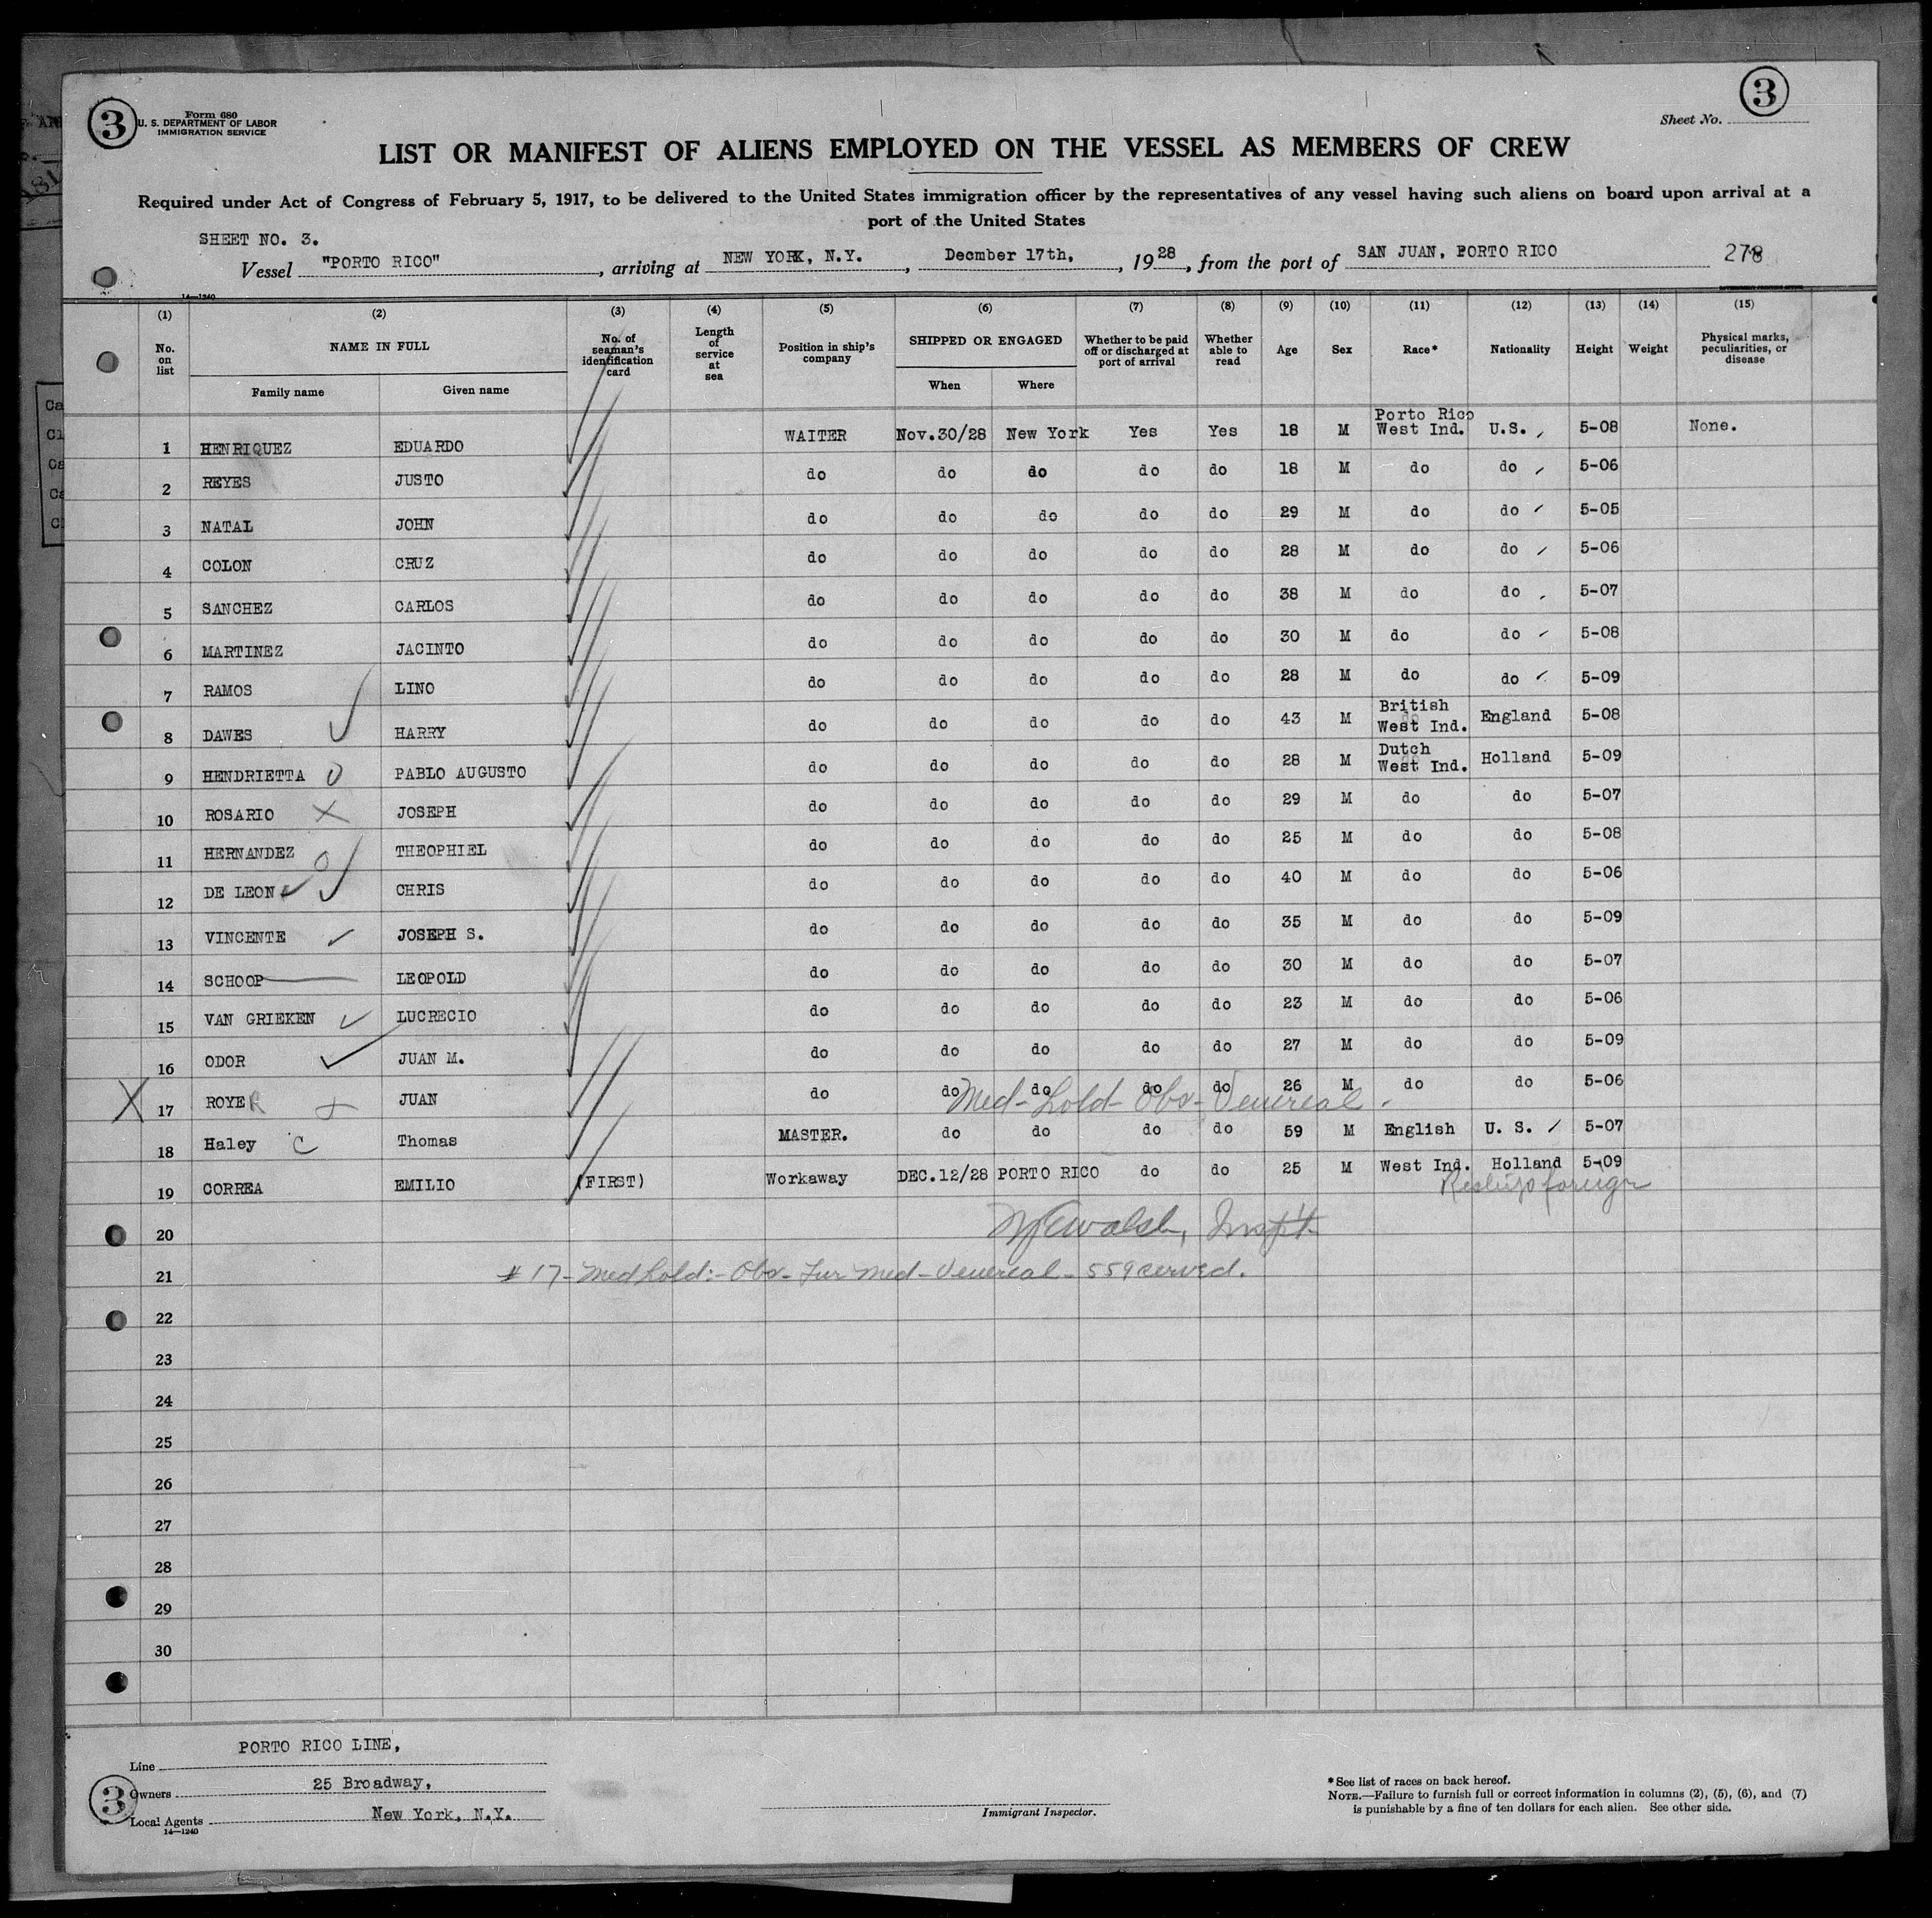 3
Form 680
U. S. DEPARTMENT OF LABOR
IMMIGRATION SERVICE
Sheet No. 3
LIST OR MANIFEST OF ALIENS EMPLOYED ON THE VESSEL AS MEMBERS OF CREW
Required under Act of Congress of February 5, 1917, to be delivered to the United States immigration officer by the representatives of any vessel having such aliens on board upon arrival at a
port of the United States
SHEET NO. 3.
Vessel "PORTO RICO", arriving at NEW YORK, N.Y., Decmber 17th, 1928, from the port of SAN JUAN, PORTO RICO 278
14—1240
(1) (2) (3) (4) (5) (6) (7) (8) (9) (10) (11) (12) (13) (14) (15)
No. on list NAME IN FULL No. of seaman's identification card Length of service at sea Position in ship's company SHIPPED OR ENGAGED Whether to be paid off or discharged at port of arrival Whether able to read Age Sex Race* Nationality Height Weight Physical marks, peculiarities, or disease
Family name Given name When Where
1 HENRIQUEZ EDUARDO WAITER Nov.30/28 New York Yes Yes 18 M Porto Rico West Ind. U.S. 5-08 None.
2 REYES JUSTO do do do do do 18 M do do 5-06
3 NATAL JOHN do do do do do 29 M do do 5-05
4 COLON CRUZ do do do do do 28 M do do 5-06
5 SANCHEZ CARLOS do do do do do 38 M do do 5-07
6 MARTINEZ JACINTO do do do do do 30 M do do 5-08
7 RAMOS LINO do do do do do 28 M do do 5-09
8 DAWES HARRY do do do do do 43 M British West Ind. England 5-08
9 HENDRIETTA PABLO AUGUSTO do do do do do 28 M Dutch West Ind. Holland 5-09
10 ROSARIO JOSEPH do do do do do 29 M do do 5-07
11 HERNANDEZ THEOPHIEL do do do do do 25 M do do 5-08
12 DE LEON CHRIS do do do do do 40 M do do 5-06
13 VINCENTE JOSEPH S. do do do do do 35 M do do 5-09
14 SCHOOP LEOPOLD do do do do do 30 M do do 5-07
15 VAN GRIEKEN LUCRECIO do do do do do 23 M do do 5-06
16 ODOR JUAN M. do do do do do 27 M do do 5-09
X 17 ROYER JUAN do do do do do 26 M do do 5-06
Med-hold-Obv-Venereal.
18 Haley C Thomas MASTER. do do do do 59 M English U. S. 5-07
19 CORREA EMILIO (FIRST) Workaway DEC.12/28 PORTO RICO do do 25 M West Ind. Holland 5-09
Reship foreign
20
21 # 17- Med hold:- Obv- Med- Venereal- 559 served.
22
23
24
25
26
27
28
29
30
Line PORTO RICO LINE,
Owners 25 Broadway,
Local Agents New York, N.Y.
3
14—1240
Immigrant Inspector.
*See list of races on back hereof.
NOTE.—Failure to furnish full or correct information in columns (2), (5), (6), and (7)
is punishable by a fine of ten dollars for each alien. See other side.